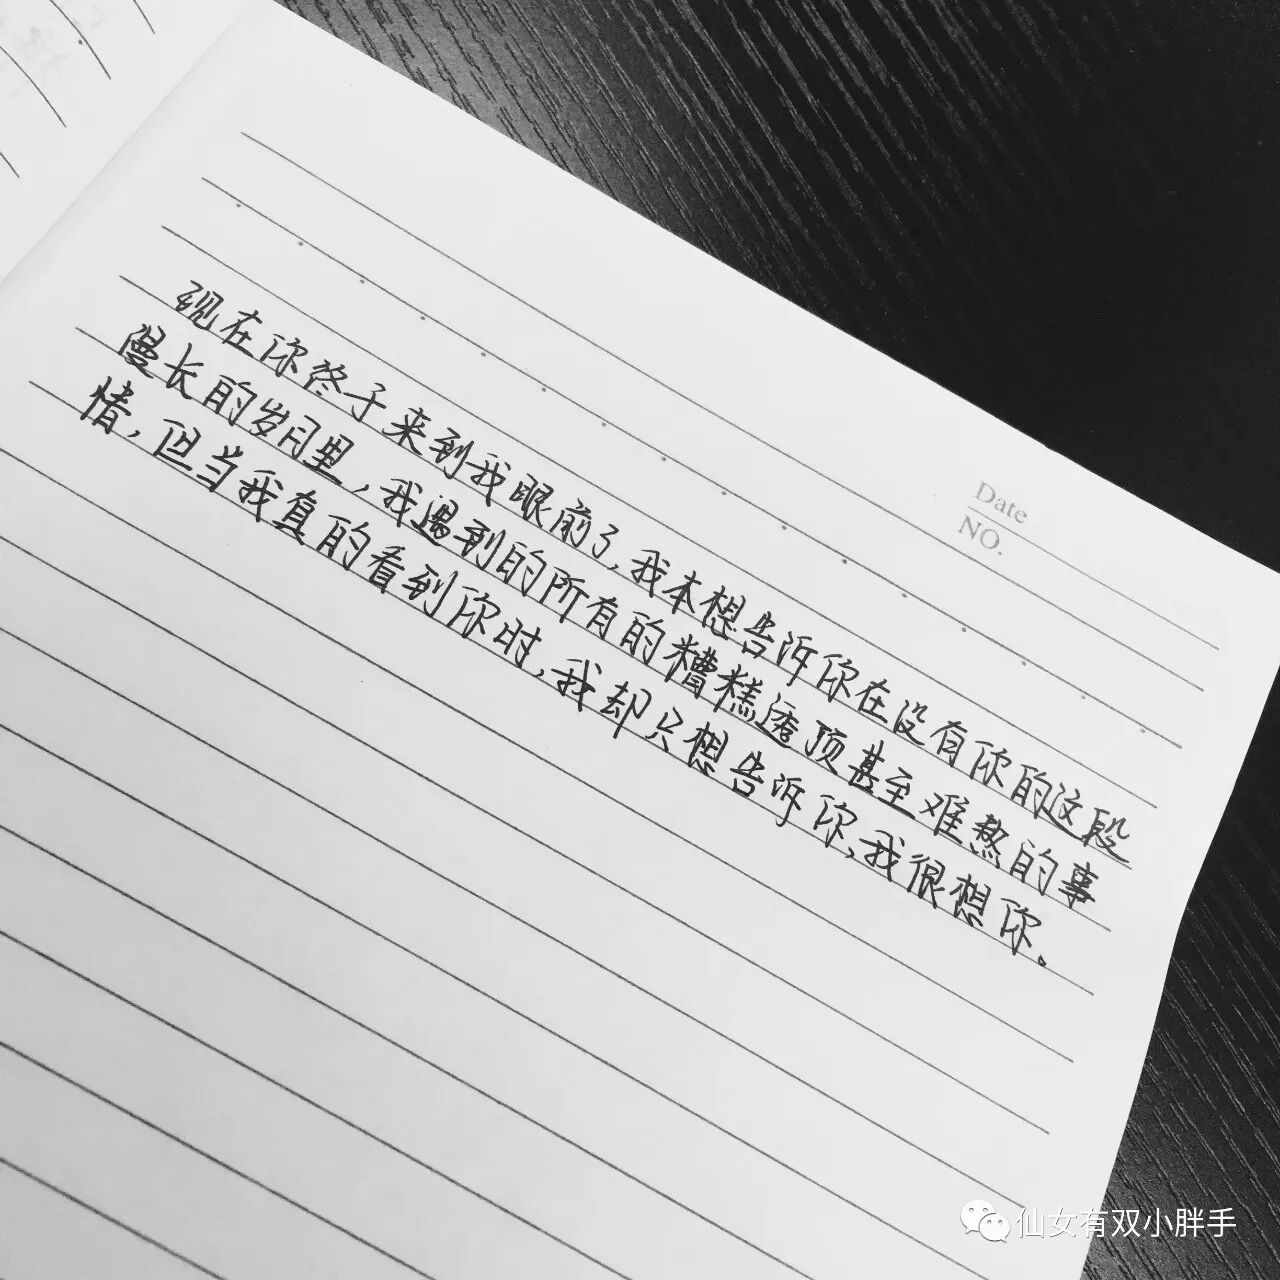 Date
NO.
现在你终于来到我眼前了,我本想告诉你在没有你的这段
漫长的岁月里,我遇到的所有的糟糕透顶甚至难熬的事
情,但当我真的看到你时,我却只想告诉你,我很想你。
仙女有双小胖手